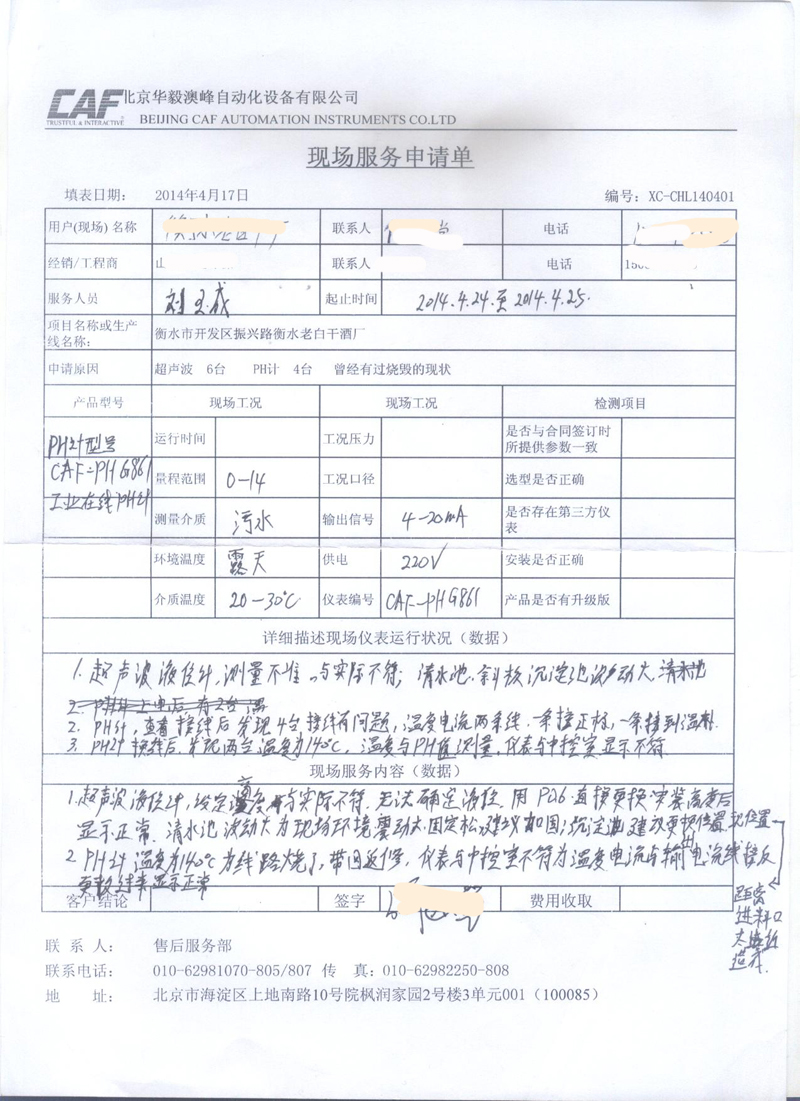 CAF 北京华毅澳峰自动化设备有限公司
TRUSTFUL & INTERACTIVE BEIJING CAF AUTOMATION INSTRUMENTS CO.LTD
现场服务申请单
填表日期: 2014年4月17日 编号: XC-CHL140401
用户(现场)名称 联系人 电话
经销/工程商 山 联系人 电话
服务人员 刘 成 起止时间 2014.4.24.至2014.4.25.
项目名称或生产线名称: 衡水市开发区振兴路衡水老白干酒厂
申请原因 超声波 6台 PH计 4台 曾经有过烧毁的现状
产品型号 现场工况 现场工况 检测项目
PH计型号
CAF-PHG861
工业在线PH计
运行时间 工况压力 是否与合同签订时所提供参数一致
量程范围 0-14 工况口径 选型是否正确
测量介质 污水 输出信号 4-20mA 是否存在第三方仪表
环境温度 露天 供电 220V 安装是否正确
介质温度 20-30℃ 仪表编号 CAF-PHG861 产品是否有升级版
详细描述现场仪表运行状况（数据）
1.超声波液位计,测量不准,与实际不符;清水池.斜板沉淀池波动大
2.PH计,查看接线后发现4台接线有问题,温度电流两条线一条接正极,一条接到温
3.PH计接线后.发现两台温度为140℃,温度与PH值测量,仪表与中控室显示不符.
现场服务内容（数据）
1.超声波液位计,设定高度与实际不符.无法确定液位.用 直接更换安装高度后
显示正常.清水池波动大为现场环境震动大.固定松.建议加固;沉淀池建议更换位置.
2.PH计温度为140℃为线路烧了,带回返修,仪表与中控室不符为温度电流与输出电流线接反
更换过来显示正常
软位置
距离
进料口
太近
造成.
客户结论 签字 费用收取
联 系 人: 售后服务部
联系电话: 010-62981070-805/807 传 真: 010-62982250-808
地 址: 北京市海淀区上地南路10号院枫润家园2号楼3单元001（100085）